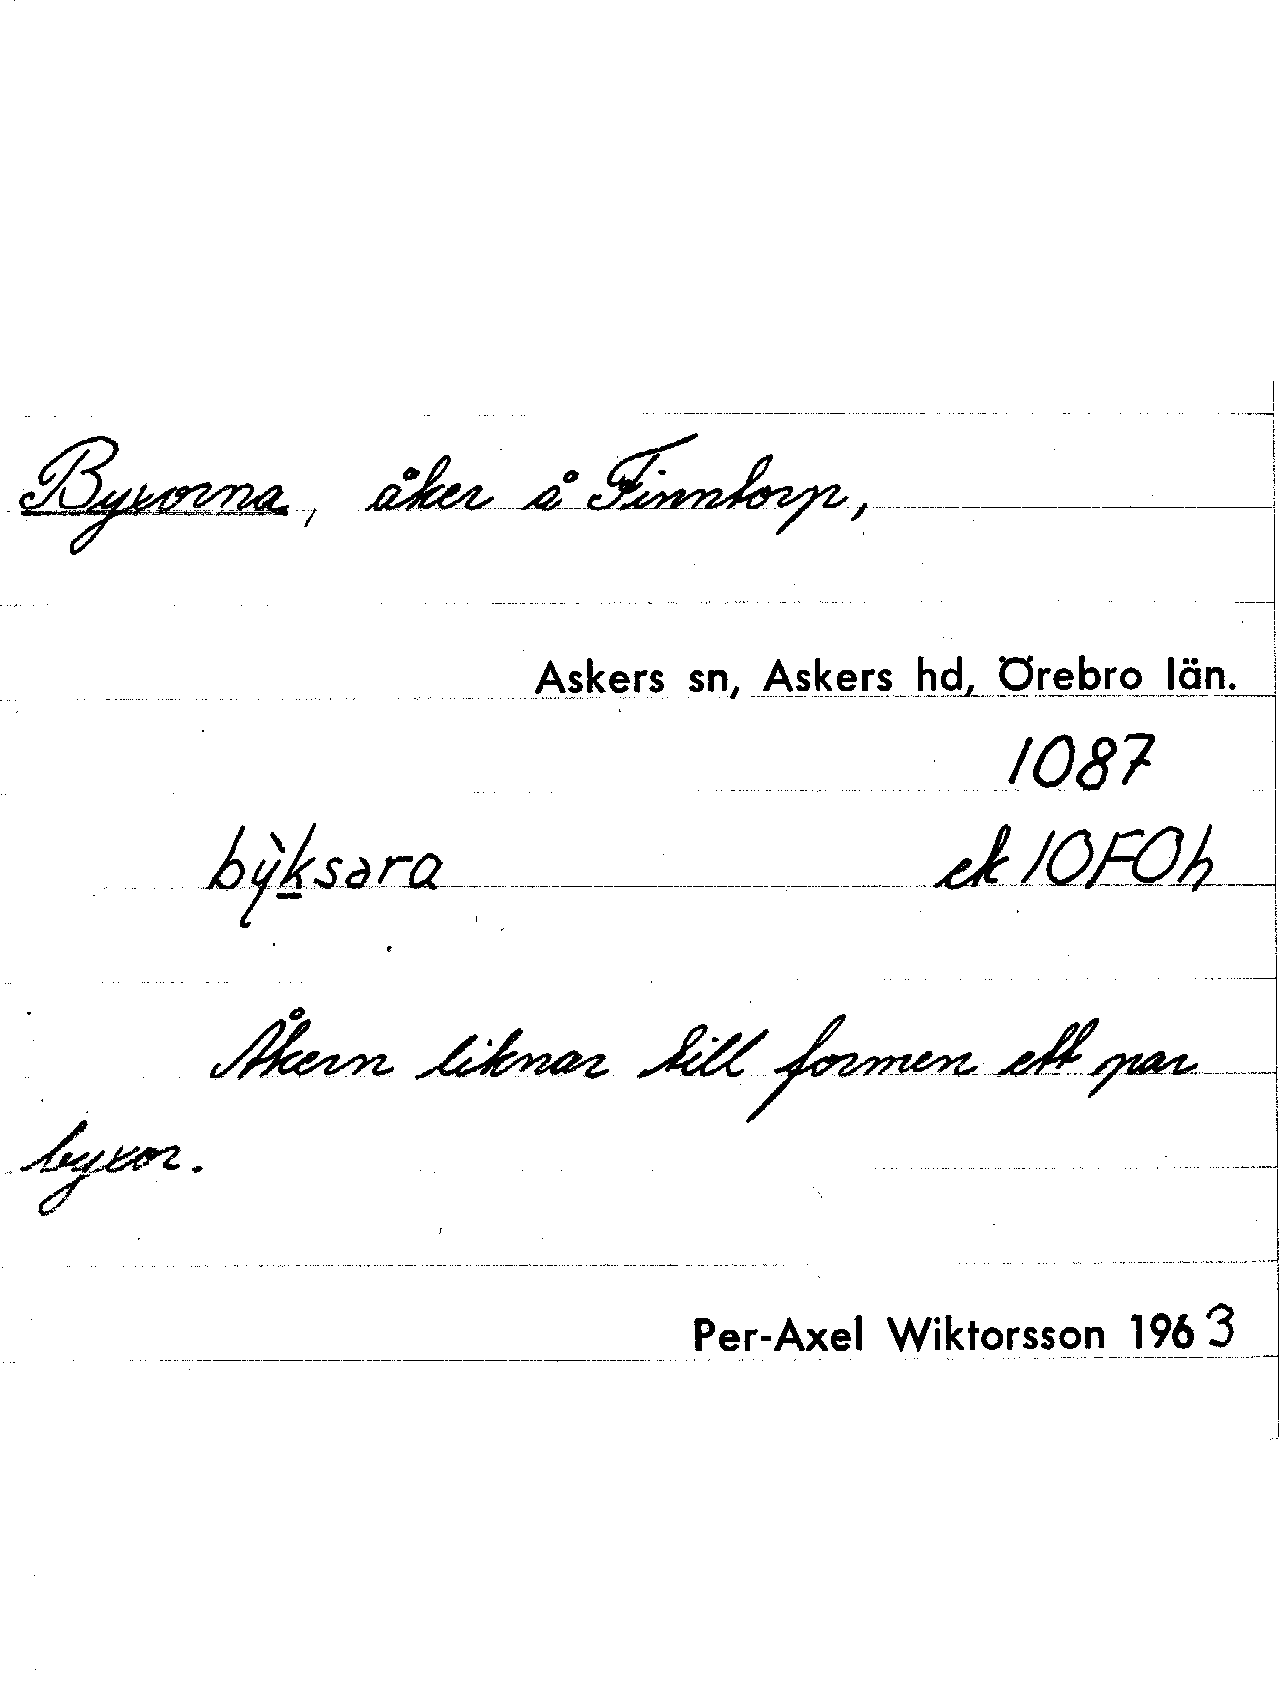 Byxorna, åker å Finntorp,
Askers sn, Askers hd, Örebro län.
1087
bỳksara ek 10F0h
Åkern liknar till formen ett par
byxor.
Per-Axel Wiktorsson 1963